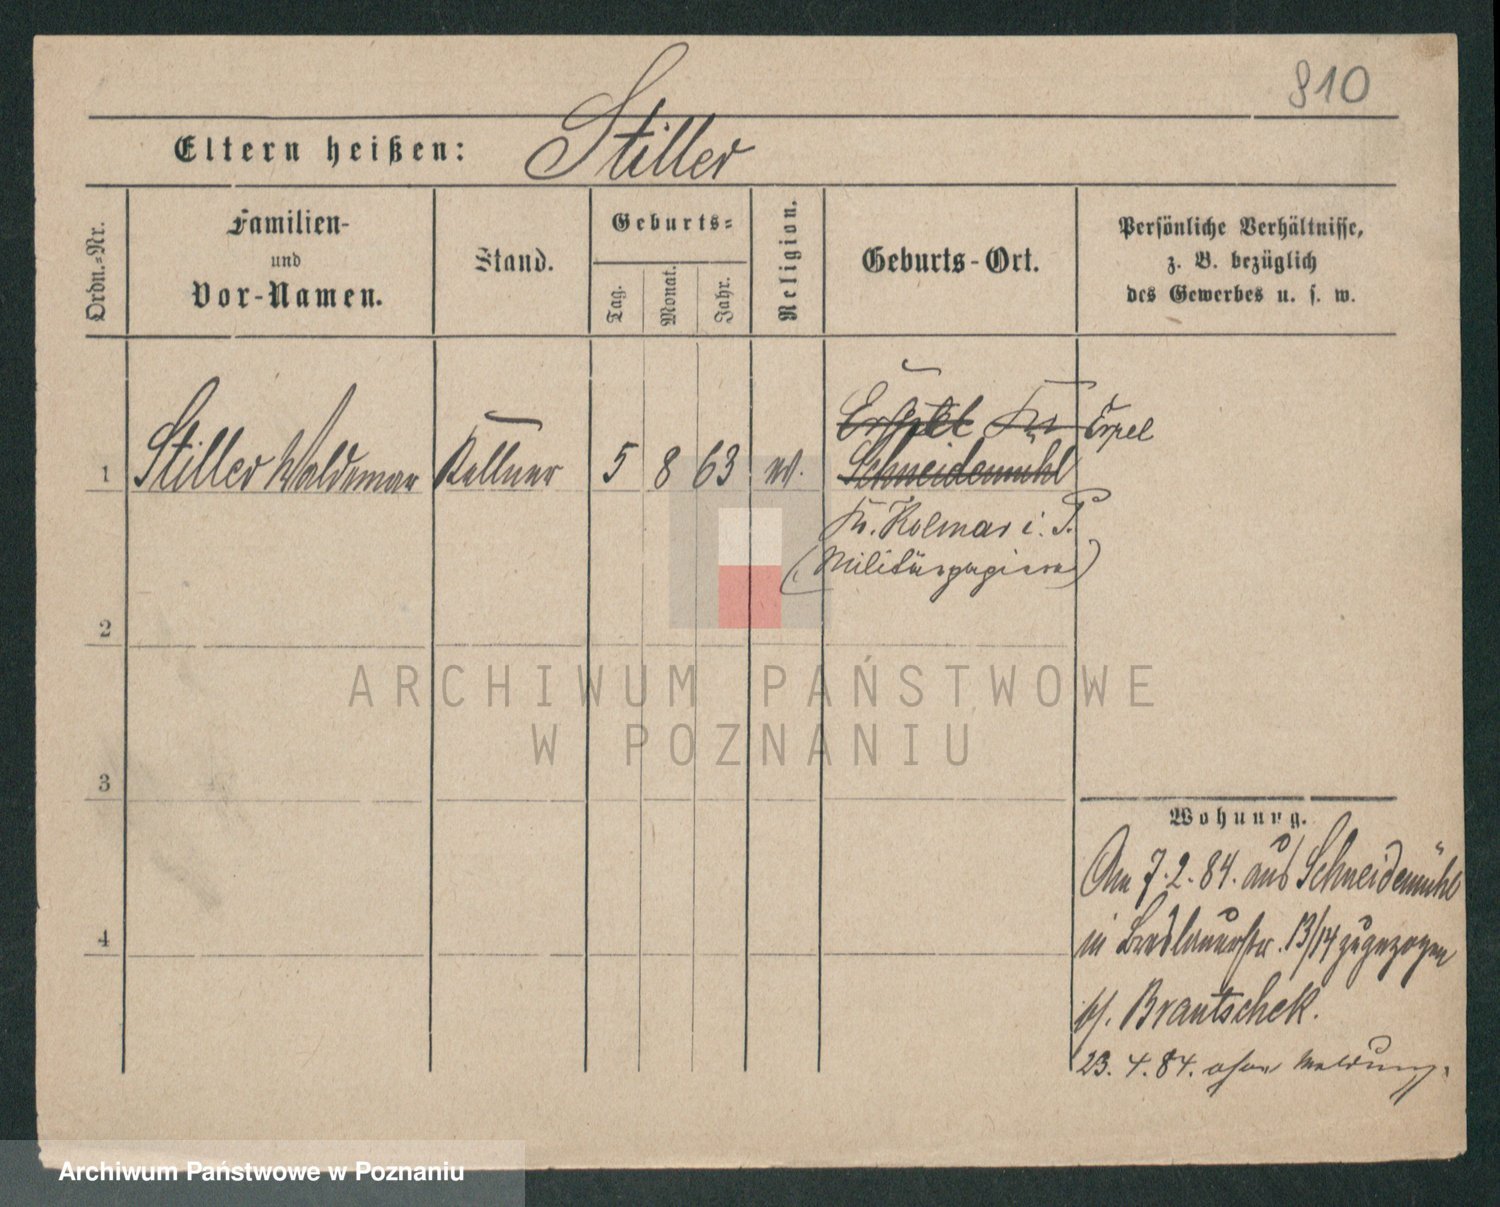 810
Eltern heißen: Stiller
Ordn.-Nr.
Familien-
und
Vor-Namen.
Stand.
Geburts-
Tag.
Monat.
Jahr.
Religion.
Geburts-Ort.
Persönliche Verhältnisse,
z. B. bezüglich
des Gewerbes u. s. w.
Erpel
1 Stiller Waldemar Kellner 5 8 63 w. Schneidemühl
Kr. Kolmar i. P.
2
3
4
Wohnung.
Am 7.2.84. aus Schneidemühl
in Breslauerstr. 13/14 zugezogen
b/. Brantschek.
23.4.84. ohne Meldung.
ARCHIWUM PAŃSTWOWE
W POZNANIU
Archiwum Państwowe w Poznaniu